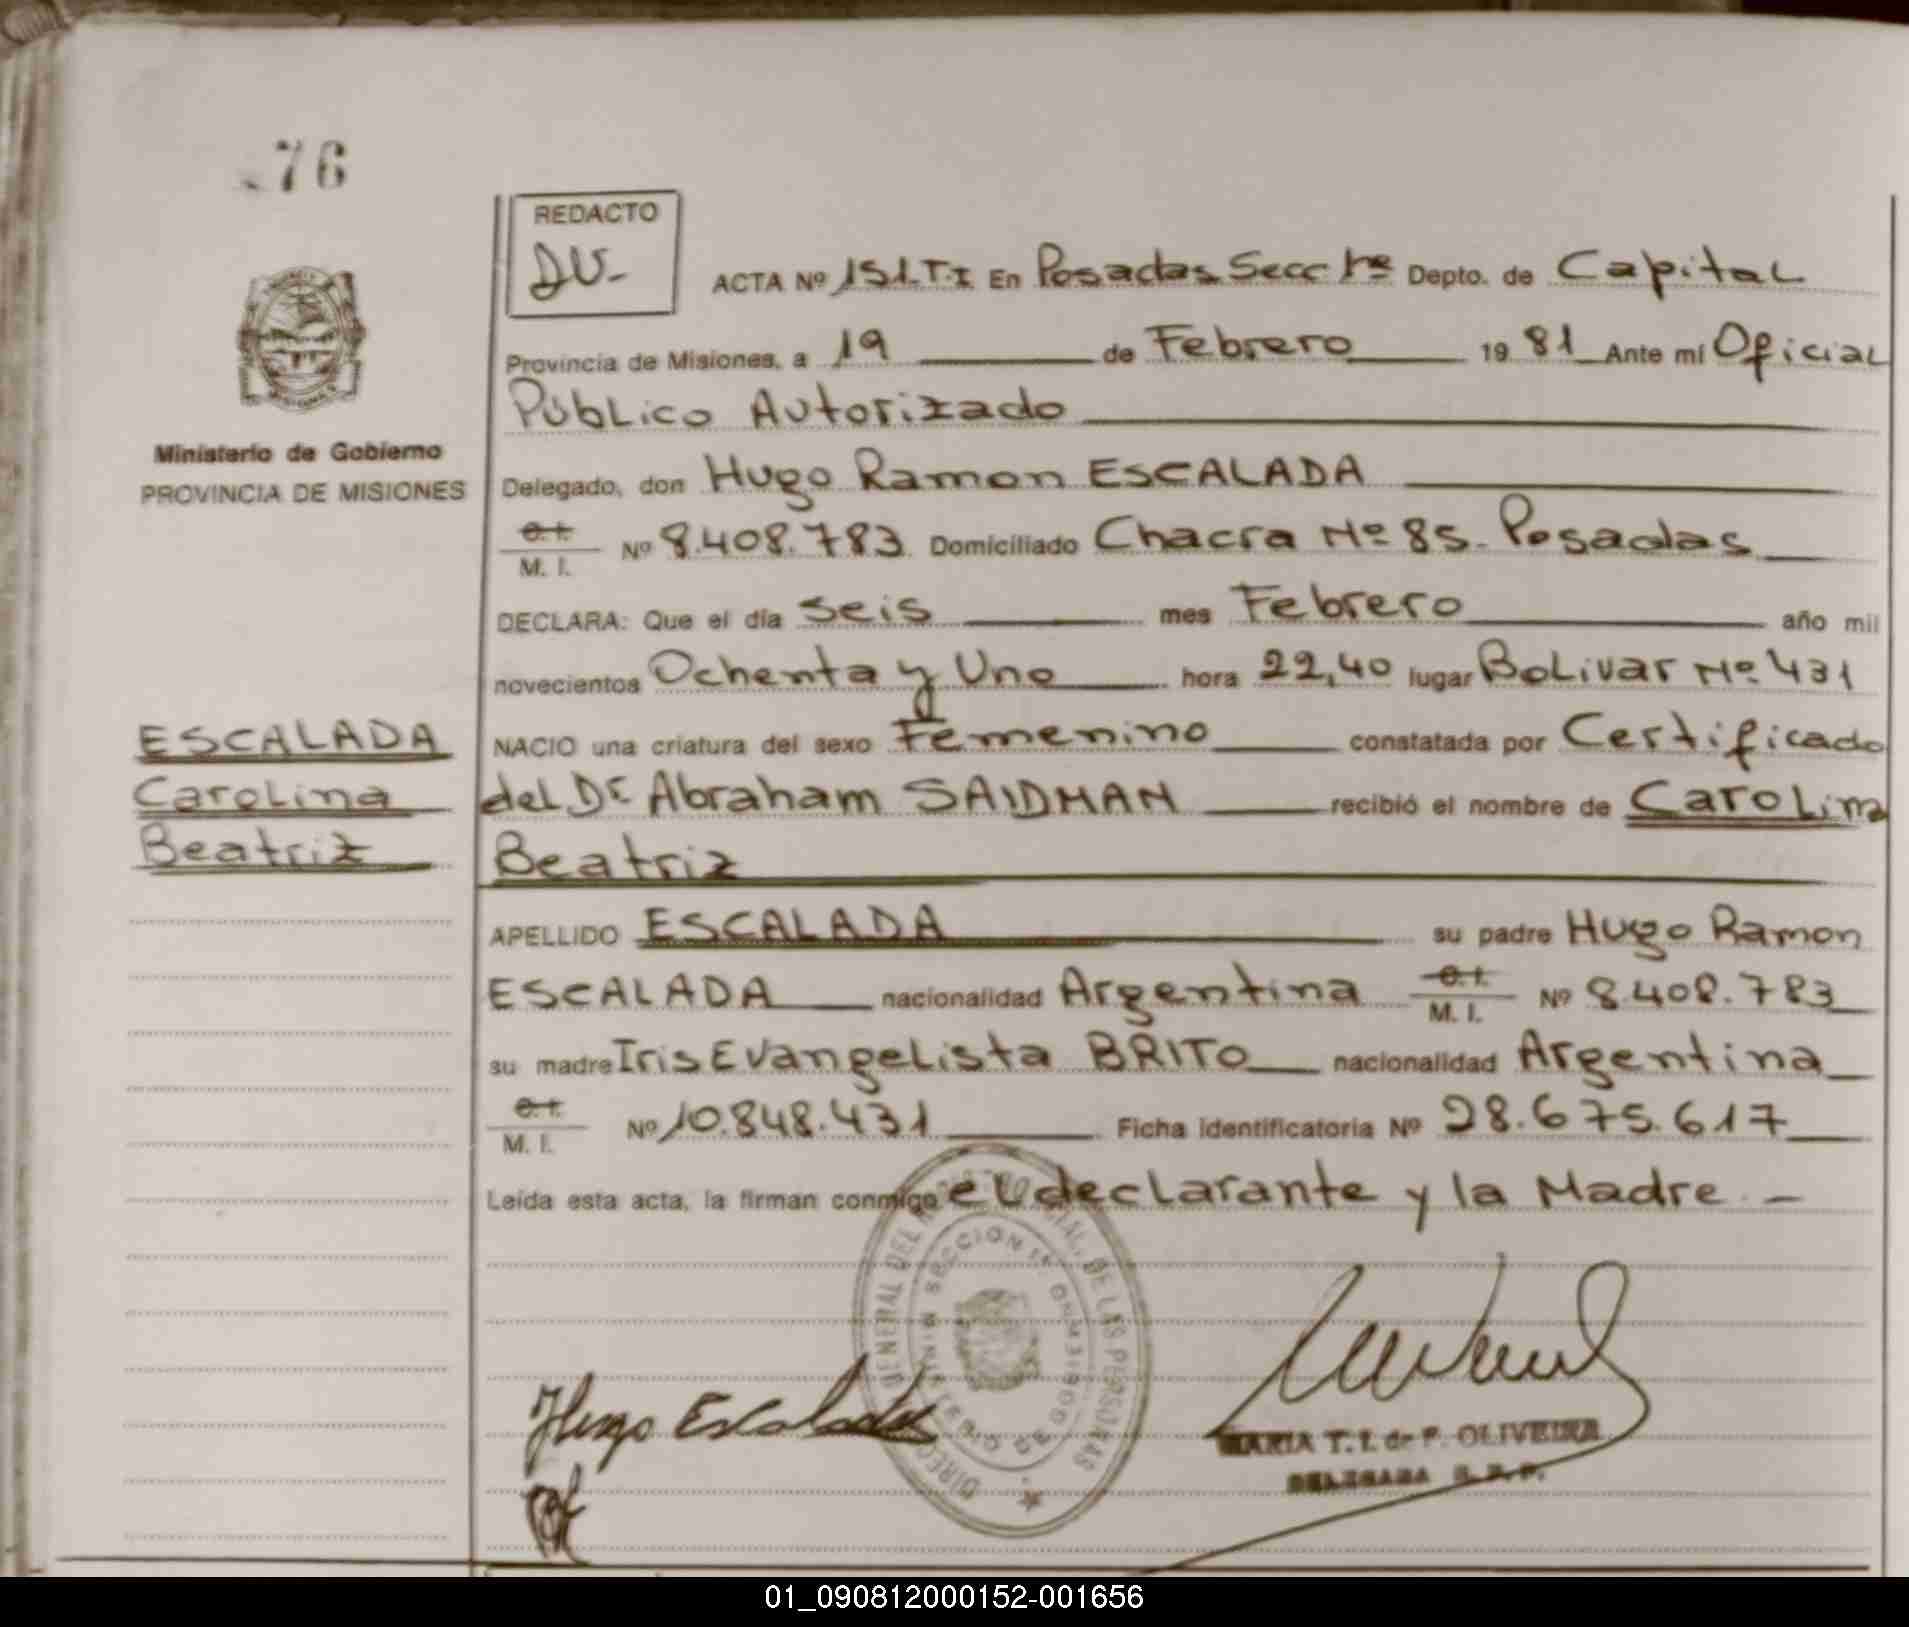 76
REDACTO
DV-
ACTA Nº 151.T.I En Posadas Secc 1ra Depto. de Capital
Provincia de Misiones, a 19 de Febrero 1981 Ante mí Oficial
Público Autorizado
Ministerio de Gobierno
PROVINCIA DE MISIONES
Delegado, don Hugo Ramon ESCALADA
C.I.
M. I. Nº 8.408.783 Domiciliado Chacra Nº 85. Posadas
DECLARA: Que el día Seis mes Febrero año mil
novecientos Ochenta y Uno hora 22,40 lugar Bolivar Nº 431
ESCALADA
Carolina
Beatriz
NACIO una criatura del sexo Femenino constatada por Certificado
del Dr Abraham SAIDMAN recibió el nombre de Carolina
Beatriz
APELLIDO ESCALADA su padre Hugo Ramon
ESCALADA nacionalidad Argentina C.I.
M. I. Nº 8.408.783
su madre Iris Evangelista BRITO nacionalidad Argentina
C.I.
M. I. Nº 10.848.431 Ficha identificatoria Nº 28.675.617
Leída esta acta, la firman conmigo el declarante y la Madre. -
Hugo Escalada
MARIA T. I. de F. OLIVEIRA
DELEGADA
01_090812000152-001656